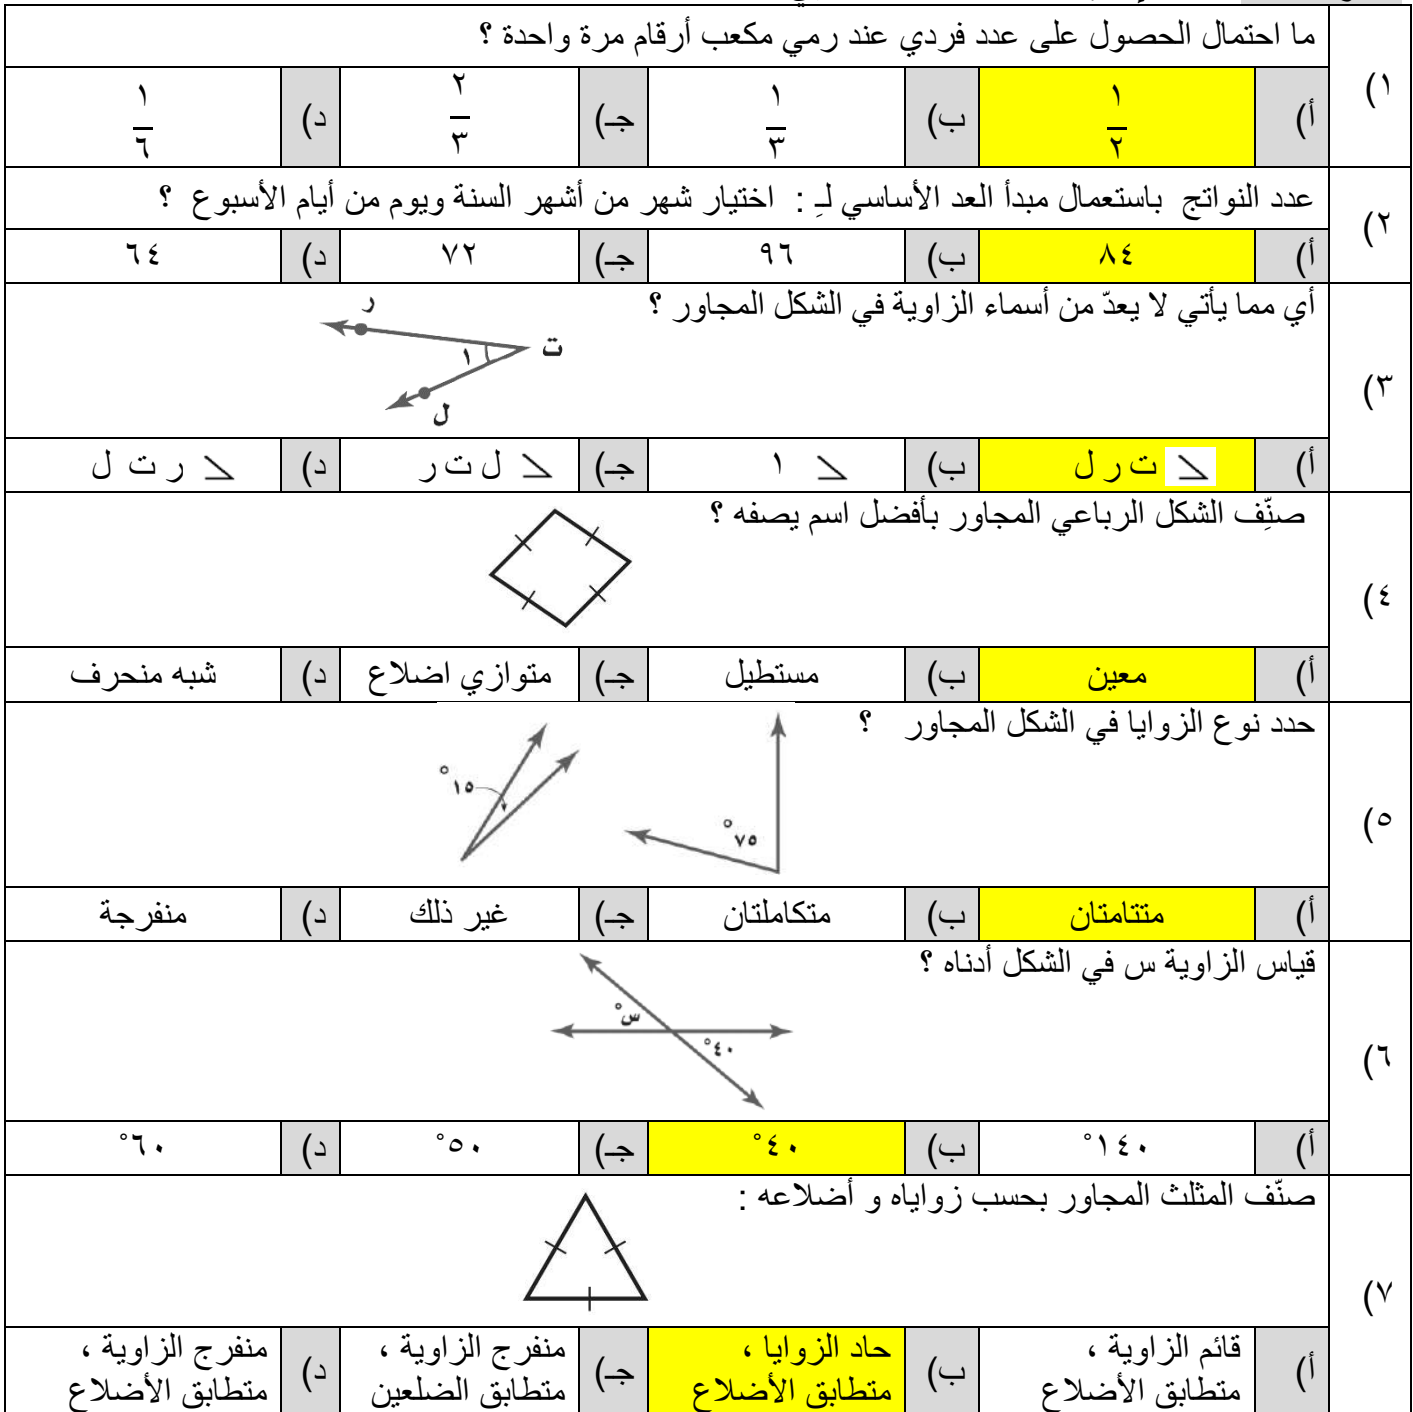 ١)
ما احتمال الحصول على عدد فردي عند رمي مكعب أرقام مرة واحدة ؟
أ) ١/٢ ب) ١/٣ جـ) ٢/٣ د) ١/٦
٢)
عدد النواتج باستعمال مبدأ العد الأساسي لـِ : اختيار شهر من أشهر السنة ويوم من أيام الأسبوع ؟
أ) ٨٤ ب) ٩٦ جـ) ٧٢ د) ٦٤
٣)
أي مما يأتي لا يعدّ من أسماء الزاوية في الشكل المجاور ؟
ر
ت
١
ل
أ) ∠ ت ر ل ب) ∠ ١ جـ) ∠ ل ت ر د) ∠ ر ت ل
٤)
صنِّف الشكل الرباعي المجاور بأفضل اسم يصفه ؟
أ) معين ب) مستطيل جـ) متوازي اضلاع د) شبه منحرف
٥)
حدد نوع الزوايا في الشكل المجاور ؟
٧٥°
١٥°
أ) متتامتان ب) متكاملتان جـ) غير ذلك د) منفرجة
٦)
قياس الزاوية س في الشكل أدناه ؟
س°
٤٠°
أ) ١٤٠° ب) ٤٠° جـ) ٥٠° د) ٦٠°
٧)
صنّف المثلث المجاور بحسب زواياه و أضلاعه :
أ) قائم الزاوية ، متطابق الأضلاع ب) حاد الزوايا ، متطابق الأضلاع جـ) منفرج الزاوية ، متطابق الضلعين د) منفرج الزاوية ، متطابق الأضلاع